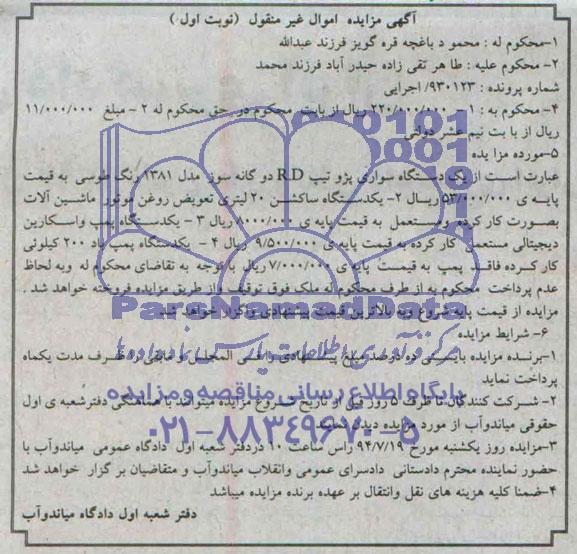 آگهی مزایده اموال غیر منقول (نوبت اول)
۱-محکوم له : محمو د باغچه قره گویز فرزند عبدالله
۲- محکوم علیه : طا هر تقی زاده حیدر آباد فرزند محمد
شماره پرونده : ۹۳۰۱۲۳/ اجرایی
۴- محکوم به : ۱- ۲۲۰/۰۰۰/۰۰۰ ریال از بابت محکوم در حق محکوم له ۲ - مبلغ ۱۱/۰۰۰/۰۰۰
ریال از با بت نیم عشر دولتی
۵-مورده مزا یده
عبارت است از یک دستگاه سواری پژو تیپ R.D دو گانه سوز مدل ۱۳۸۱ رنگ طوسی به قیمت
پایه ی ۵۳/۰۰۰/۰۰۰ ریال ۲- یکدستگاه ساکشن ۲۰ لیتری تعویض روغن موتور ماشین آلات
بصورت کار کرده و مستعمل به قیمت پایه ی ۸۰۰۰/۰۰۰ ریال ۳ - یکدستگاه پمپ واسکازین
دیجیتالی مستعمل کار کرده به قیمت پایه ی ۹/۵۰۰/۰۰۰ ریال ۴ - یکدستگاه پمپ باد ۲۰۰ کیلوئی
کار کرده فاقد پمپ به قیمت پایه ی ۷/۰۰۰/۰۰۰ ریال با توجه به تقاضای محکوم له وبه لحاظ
عدم پرداخت محکوم به از طرف محکوم له ملک فوق توقیف و از طریق مزایده فروخته خواهد شد .
مزایده از قیمت پایه شروع وبه بالاترین قیمت پیشنهادی واگزار خواهد شد
۶- شرایط مزایده
۱-برنده مزایده بایستی ده درصد مبلغ پیشنهادی را فی المجلس و مابقی را ظرف مدت یکماه
پرداخت نماید
۲- شرکت کنندگان تا ظرف ۵ روز قبل از تاریخ شروع مزایده میتوانند با هماهنگی دفتر شعبه ی اول
حقوقی میاندوآب از مورد مزایده دیدن نمایند
۳-مزایده روز یکشنبه مورخ ۹۴/۷/۱۹ راس ساعت ۱۰ در دفتر شعبه اول دادگاه عمومی میاندوآب با
حضور نماینده محترم دادستانی دادسرای عمومی وانقلاب میاندوآب و متقاضیان بر گزار خواهد شد
۴-ضمنا کلیه هزینه های نقل وانتقال بر عهده برنده مزایده میباشد
دفتر شعبه اول دادگاه میاندوآب
ParsNamadData
مرکز فرآوری اطلاعات پارس نماد داده ها
پایگاه اطلاع رسانی مناقصه و مزایده
۰۲۱-۸۸۳۴۹۶۷۰-۵